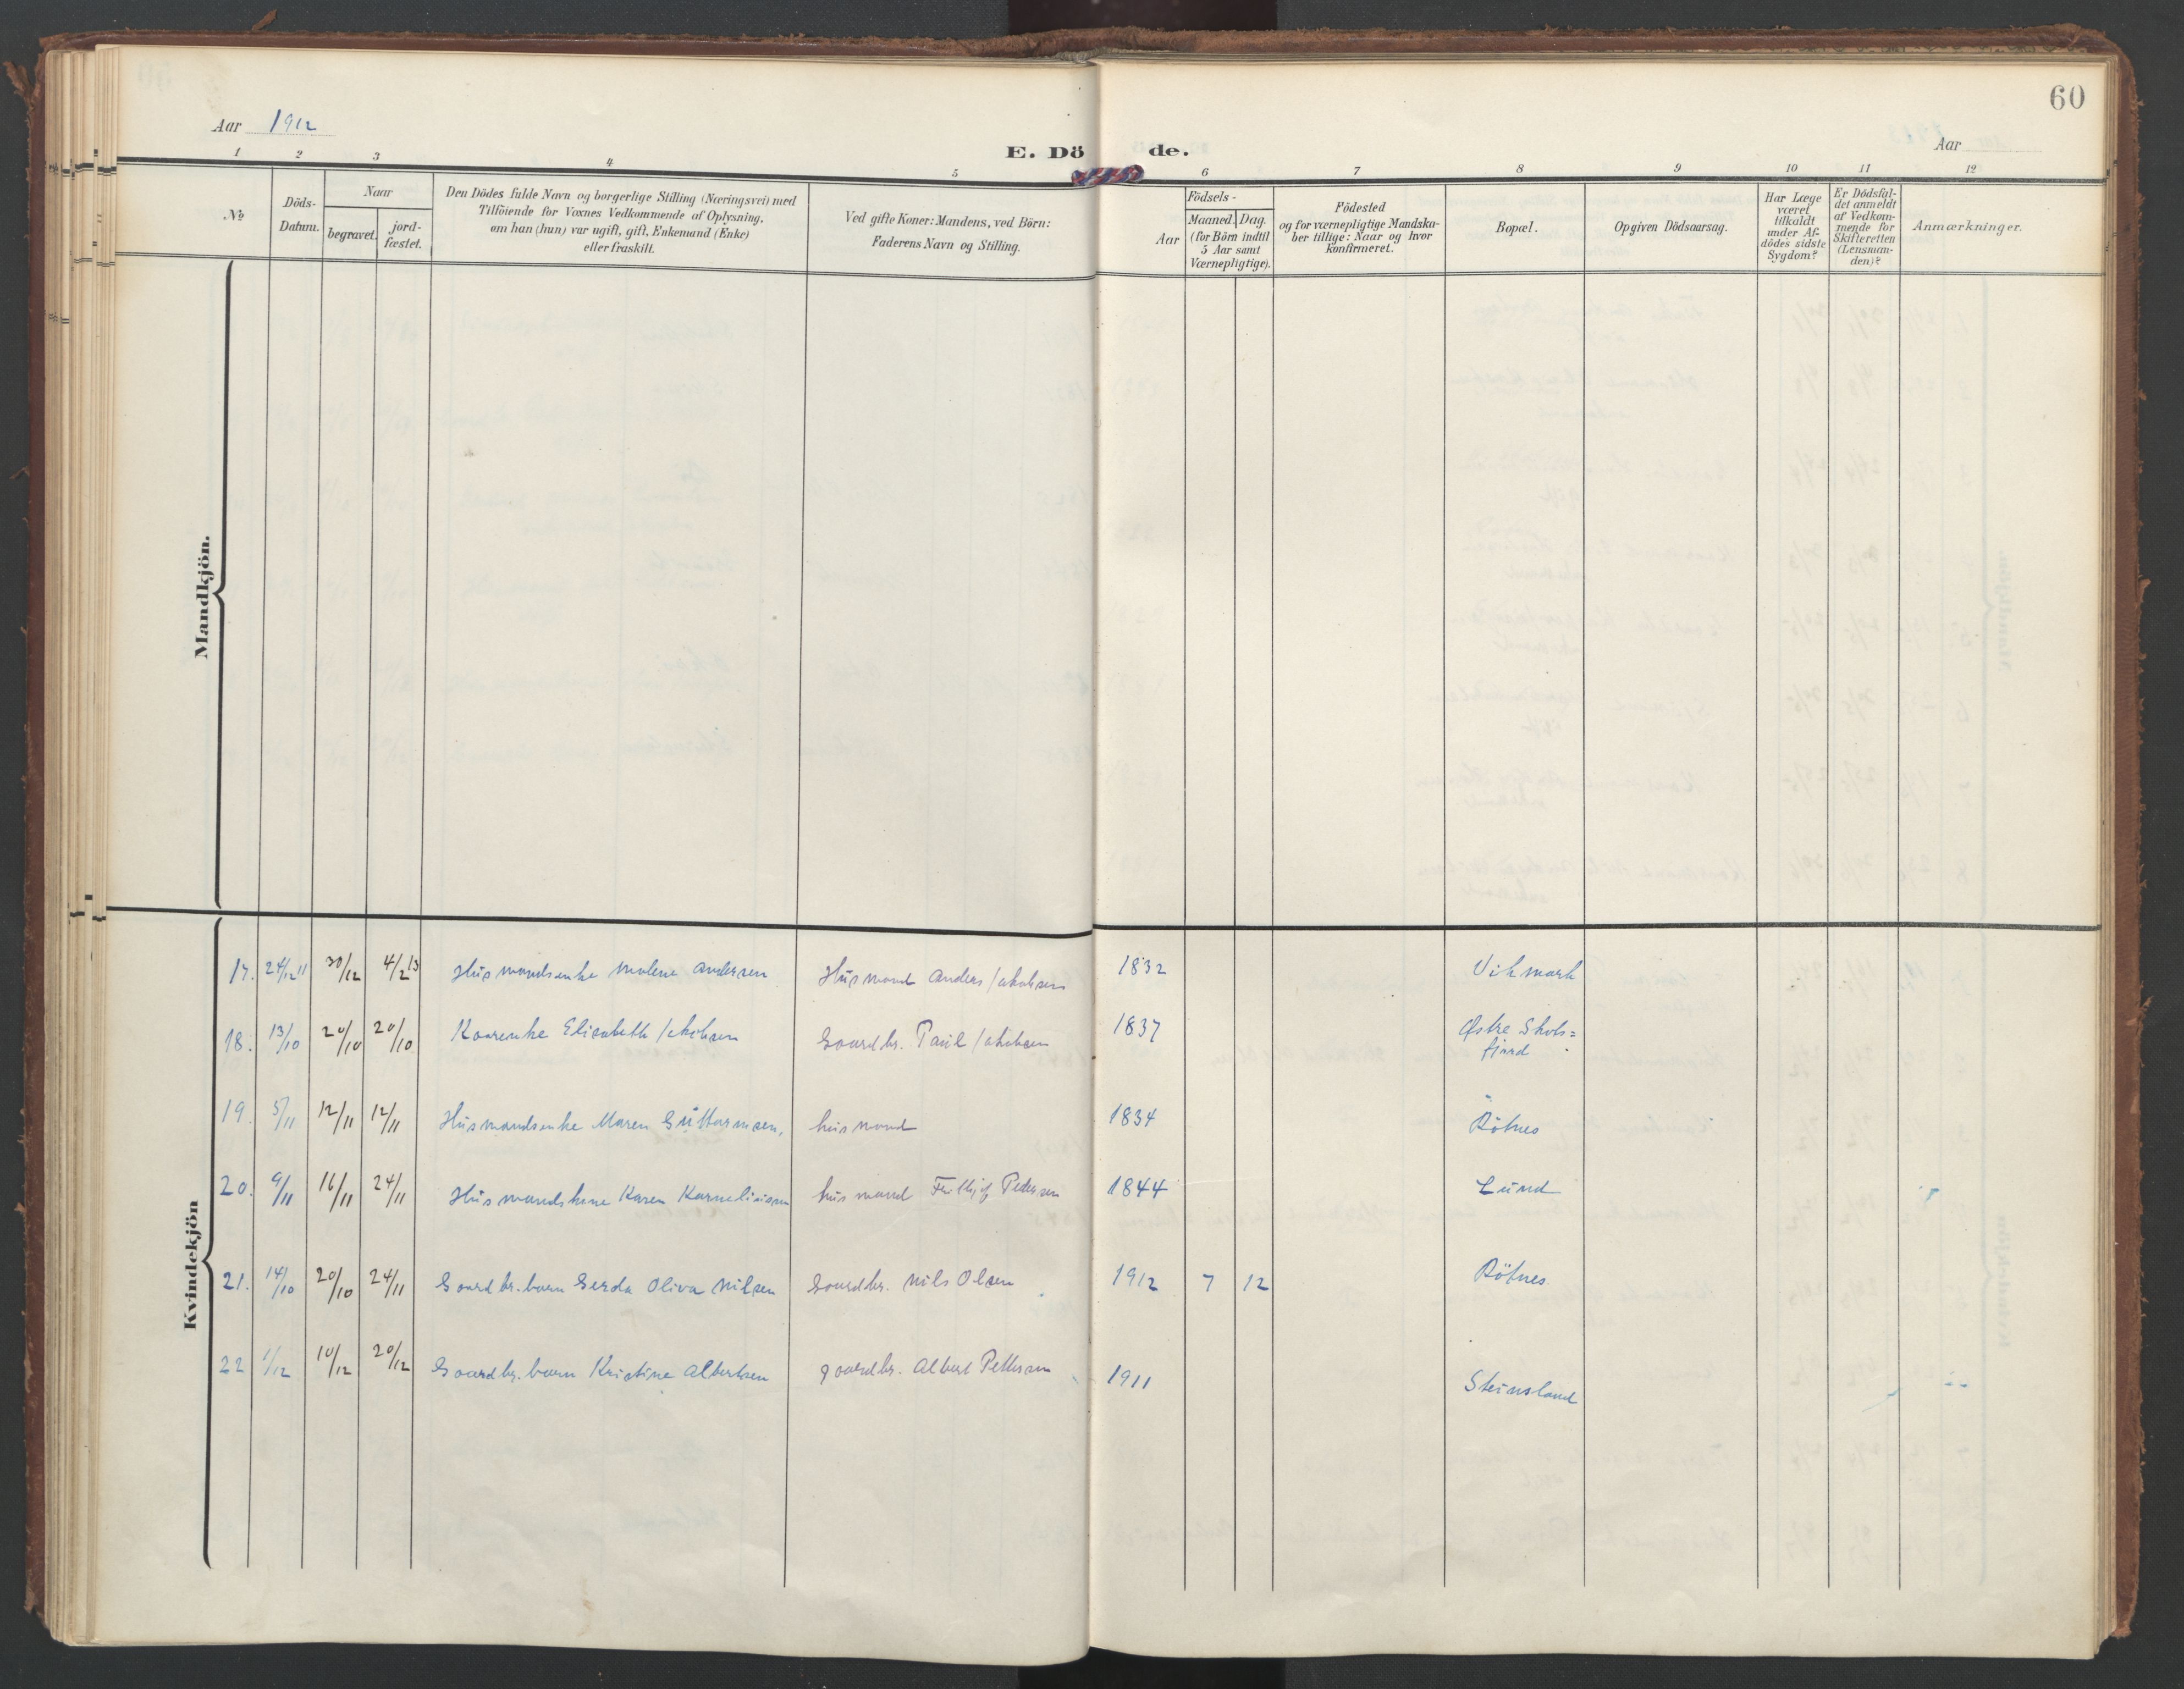 60
Aar 1912
Aar
E. Döde.
1 2 3 4 5 6 7 8 9 10 11 12
№
Döds-
Datum.
Naar
begravet.
jord-
fæstet.
Den Dödes fulde Navn og borgerlige Stilling (Næringsvei) med
Tilföiende for Voxnes Vedkommende af Oplysning,
om han (hun) var ugift, gift, Enkemand (Enke)
eller fraskilt.
Ved gifte Koner: Mandens, ved Börn:
Faderens Navn og Stilling.
Födsels-
Aar
Maaned. Dag.
(for Börn indtil
5 Aar samt
Værnepligtige).
Födested
og for værnepligtige Mandska-
ber tillige: Naar og hvor
konfirmeret.
Bopæl.
Opgiven Dödsaarsag.
Har Læge
været
tilkaldt
under Af-
dödes sidste
Sygdom?
Er Dödsfal-
det anmeldt
af Vedkom-
mende for
Skifteretten
(Lensman-
den)?
Anmærkninger.
Mandkjön.
Kvindekjön
17. 24/12 11 30/12 4/2 13 Husmandsenke Malene Andersen Husmand Anders Jakobsen 1832 Vikmark
18. 13/10 20/10 20/10 Kaarenke Elisabeth Jakobsen Gaardbr. Paul Jakobsen 1837 Østre Skots=
fjord
19. 5/11 12/11 12/11 Husmandsenke Maren Guttormsen, husmand 1834 Rötnes
20. 9/11 16/11 24/11 Husmandskone Karen Korneliusen husmand Frithjof Pedersen 1844 Lund
21. 14/10 20/10 24/11 Gaardbr. barn Gerda Oliva Nilsen Gaardbr. Nils Olsen 1912 7 12 Rötnes.
22 1/12 10/12 20/12 Gaardbr. barn Kristine Albertsen gaardbr. Albert Pettersen 1911 Steinsland